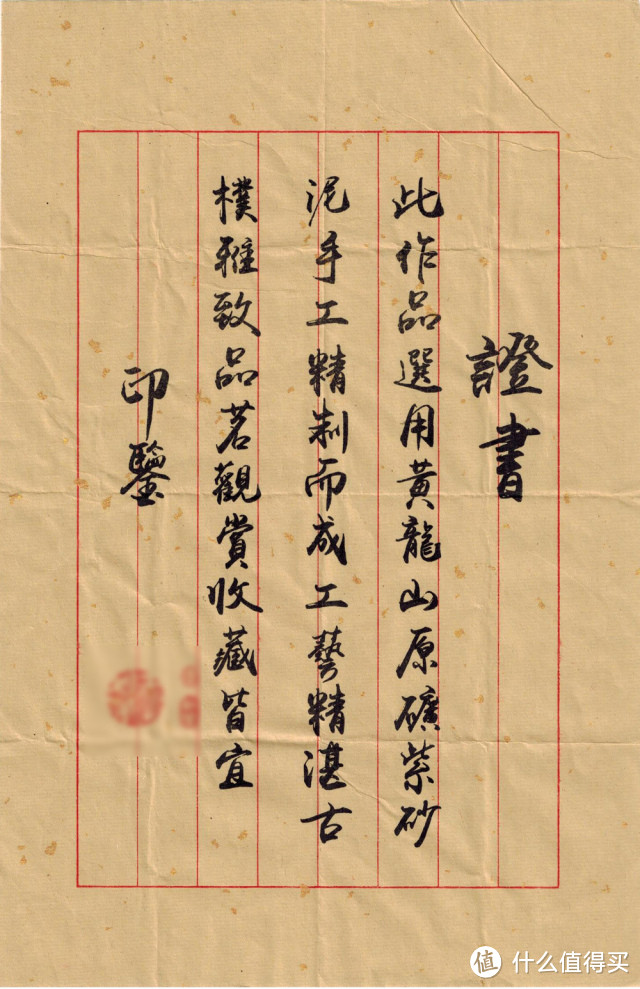 證書
此作品選用黃龍山原礦紫砂
泥手工精制而成工藝精湛古
樸雅致品茗觀賞收藏皆宜
印鑒
值 什么值得买